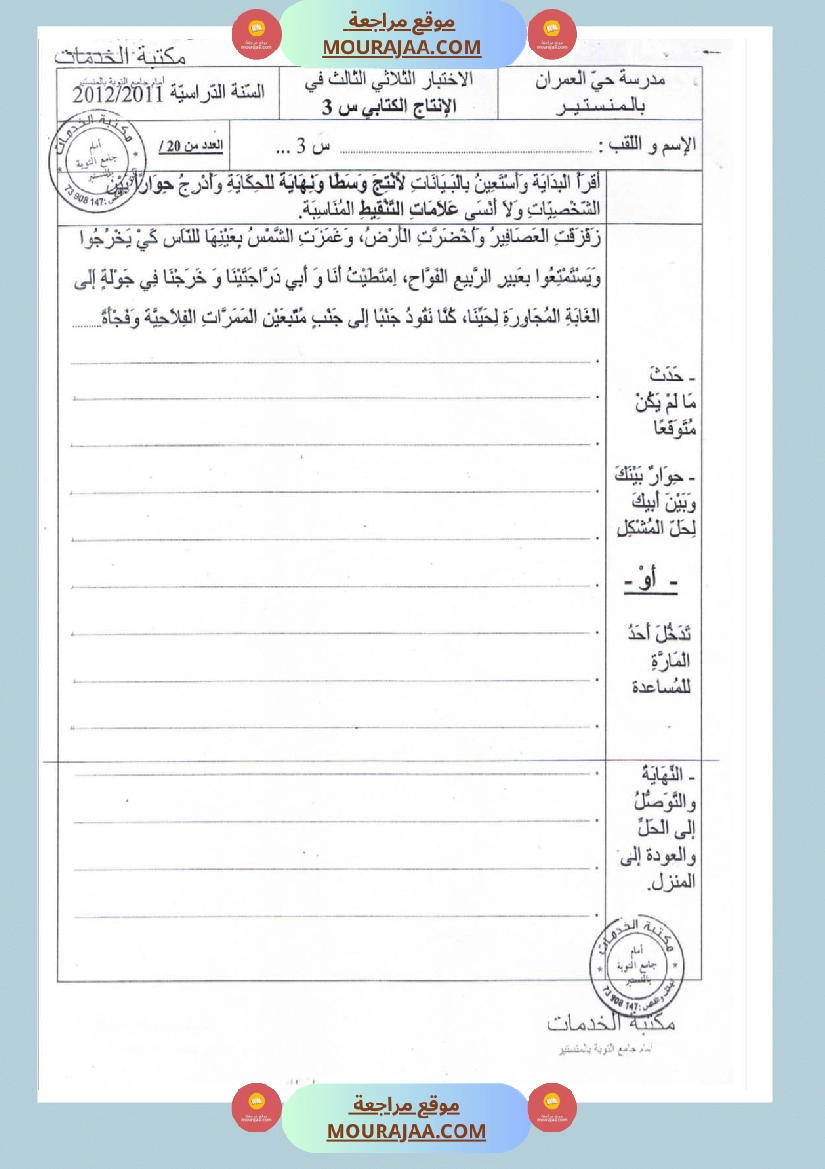 موقع مراجعة
MOURAJAA.COM
مكتبة الخدمات
أمام جامع التوبة بالمنستير
مدرسة حيّ العمران
بالمنستير
الاختبار الثلاثي الثالث في
الإنتاج الكتابي س 3
السّنة الدّراسيّة 2012/2011
الإسم و اللقب : ........ س 3 ...
العدد من 20 /
مكتبة الخدمات
أمام
جامع التوبة
بالمنستير
73 908 147
أقرَأُ البِدَايَةَ وَأَسْتَعِينُ بِالبَيَانَاتِ لأُنْتِجَ وَسَطًا وَنِهَايَةً للحِكَايَةِ وَأُدْرِجُ حِوَارًا بَيْنَ
الشَّخْصِيّاتِ وَلاَ أَنْسَى عَلاَمَاتِ التَّنْقِيطِ المُنَاسِبَة.
زَقْزَقَتِ العَصَافِيرُ وَاخْضَرَّتِ الأَرْضُ، وَغَمَزَتِ الشَّمْسُ بِعَيْنِهَا للنّاس كَيْ يَخْرُجُوا
وَيَسْتَمْتِعُوا بِعَبِيرِ الرَّبِيعِ الفَوَّاح، اِمْتَطَيْتُ أَنَا وَ أَبِي دَرَّاجَتَيْنَا وَ خَرَجْنَا فِي جَوْلَةٍ إلَى
الغَابَةِ المُجَاوِرَةِ لِحَيِّنَا، كُنَّا نَقُودُ جَنْبًا إلَى جَنْبٍ مُتَّبِعَيْن المَمَرَّاتِ الفِلاَحِيَّة وَفَجْأَةً........
- حَدَثَ
مَا لَمْ يَكُنْ
مُتَوَقَّعًا
- حِوَارٌ بَيْنَكَ
وَبَيْنَ أَبِيكَ
لِحَلّ المُشْكِلِ
- أوْ -
تَدَخُّلَ أَحَدُ
المَارَّةِ
للمُساعدة
- النِّهَايَةُ
والتَّوَصُّلُ
إلى الحَلِّ
والعودة إلى
المنزل.
مكتبة الخدمات
أمام
جامع التوبة
بالمنستير
73 908 147
مكتبة الخدمات
أمام جامع التوبة بالمنستير
موقع مراجعة
MOURAJAA.COM